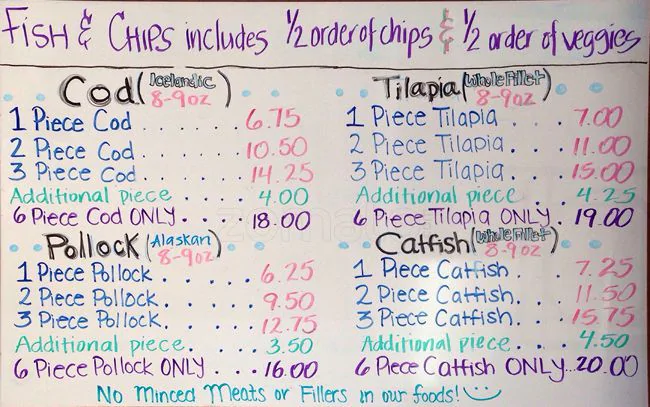 Fish & Chips includes 1/2 order of chips & 1/2 order of veggies
Cod (Icelandic 8-9oz)
1 Piece Cod . . . . . . 6.75
2 Piece Cod . . . . . . 10.50
3 Piece Cod . . . . . . 14.25
Additional piece . . . 4.00
6 Piece Cod ONLY . . . . 18.00
Tilapia (Whole Fillet 8-9oz)
1 Piece Tilapia . . . . 7.00
2 Piece Tilapia . . . . 11.00
3 Piece Tilapia . . . . 15.00
Additional piece . . . 4.25
6 Piece Tilapia ONLY . 19.00
Pollock (Alaskan 8-9oz)
1 Piece Pollock . . . . . 6.25
2 Piece Pollock . . . . . 9.50
3 Piece Pollock . . . . . 12.75
Additional piece . . . . 3.50
6 Piece Pollock ONLY . . . 16.00
Catfish (Whole Fillet 8-9oz)
1 Piece Catfish . . . 7.25
2 Piece Catfish . . . 11.50
3 Piece Catfish . . . 15.75
Additional piece . . . 4.50
6 Piece Catfish ONLY . . 20.00
No Minced Meats or Fillers in our foods!